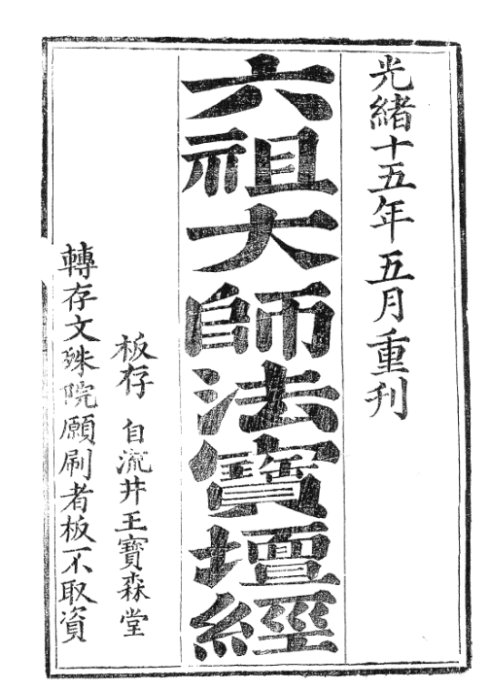 光緒十五年五月重刊
六祖大師法寶壇經
板存自流井王寶森堂
轉存文殊院願刷者板不取資